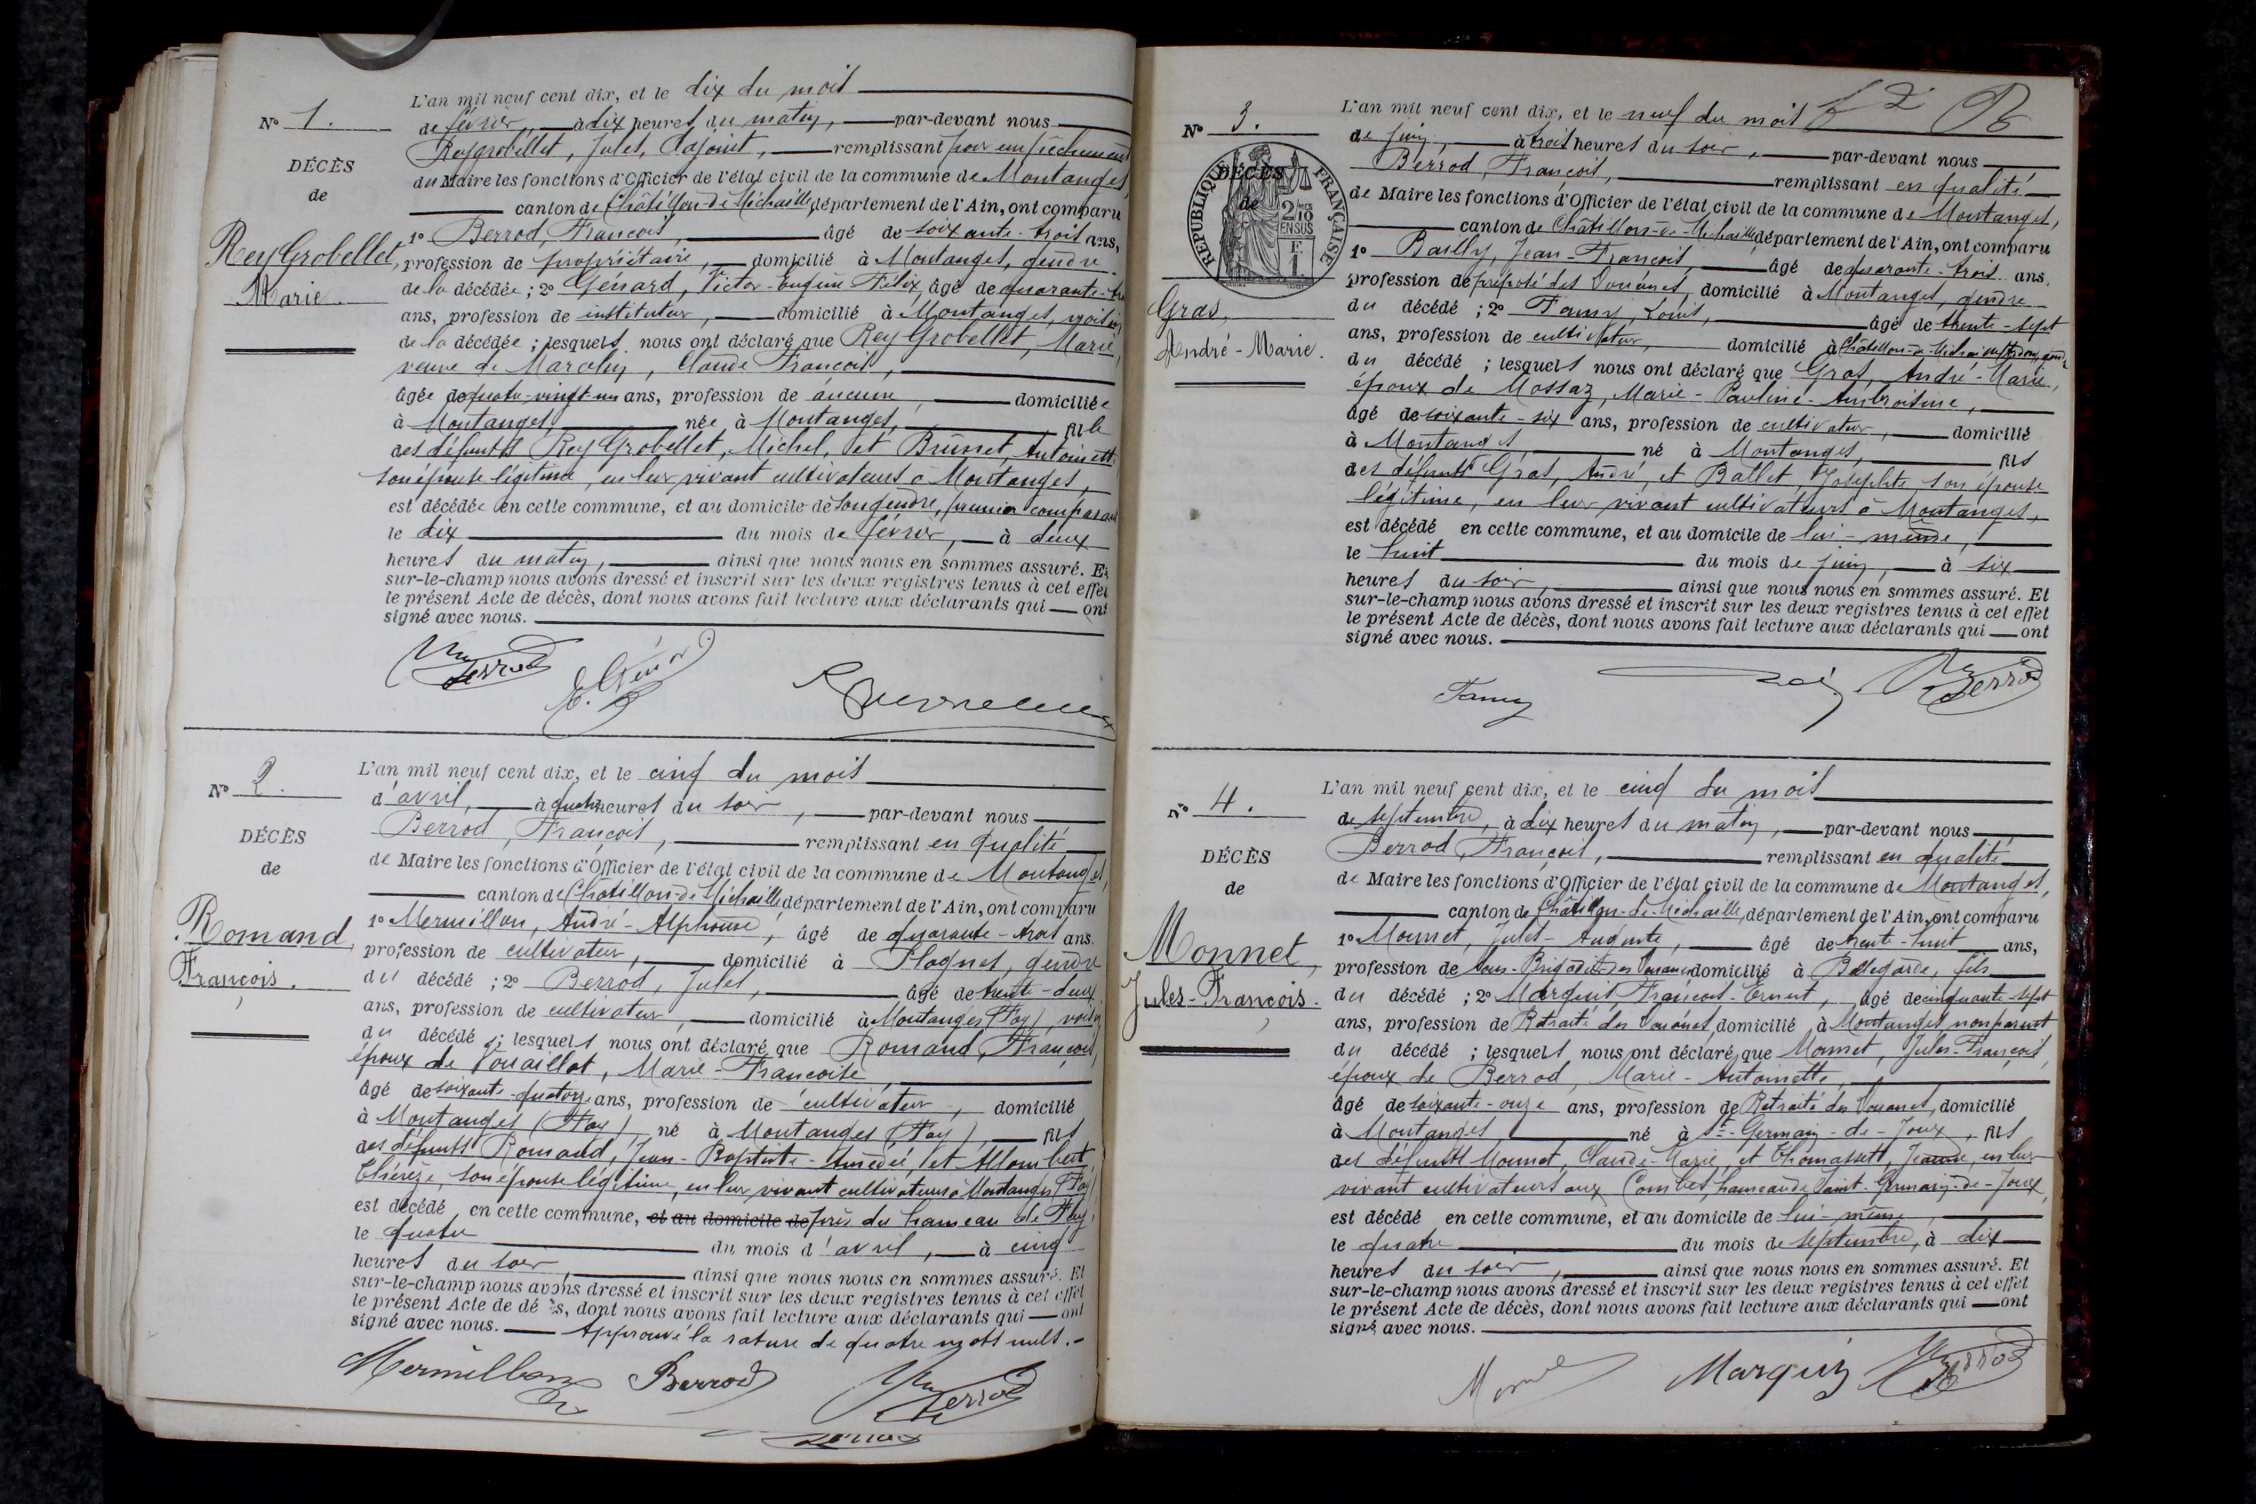 N° 1.
DÉCÈS
de
Rey Grobellet,
Marie.
L'an mil neuf cent dix, et le dix du mois
de février, à dix heures du matin, par-devant nous
Reygrobellet, Jules, Adjoint, remplissant pour empêchement
du Maire les fonctions d'Officier de l'état civil de la commune de Montanges,
canton de Châtillon-de-Michaille, département de l'Ain, ont comparu
1° Berrod, François, âgé de soixante-trois ans,
profession de propriétaire, domicilié à Montanges, gendre
de la décédée ; 2° Génard, Victor-Eugène Félix, âgé de quarante-
ans, profession de instituteur, domicilié à Montanges, voisin
de la décédée ; lesquels nous ont déclaré que Rey Grobellet, Marie,
veuve de Marchy, Claude François,
âgée de quatre-vingt-un ans, profession de aucune, domiciliée
à Montanges, née à Montanges, fille
des défunts Rey Grobellet, Michel, et Brunet, Antoinette
son épouse légitime, en leur vivant cultivateurs à Montanges,
est décédée en cette commune, et au domicile de son gendre, premier comparant
le dix du mois de février, à deux
heures du matin, ainsi que nous nous en sommes assuré. Et
sur-le-champ nous avons dressé et inscrit sur les deux registres tenus à cet effet
le présent Acte de décès, dont nous avons fait lecture aux déclarants qui ont
signé avec nous.
Berrod
N° 2.
DÉCÈS
de
Romand,
François.
L'an mil neuf cent dix, et le cinq du mois
d'avril, à quatre heures du soir, par-devant nous
Berrod, François, remplissant en qualité
de Maire les fonctions d'Officier de l'état civil de la commune de Montanges,
canton de Châtillon-de-Michaille, département de l'Ain, ont comparu
1° Mermillon, André-Alphonse, âgé de quarante-trois ans,
profession de cultivateur, domicilié à Plagnes, gendre
du décédé ; 2° Berrod, Jules, âgé de trente-deux
ans, profession de cultivateur, domicilié à Montanges, voisin
du décédé ; lesquels nous ont déclaré que Romand, François,
époux de Vouaillat, Marie-Françoise
âgé de soixante-quatorze ans, profession de cultivateur, domicilié
à Montanges né à Montanges fils
des défunts Romand, Jean-Baptiste-Amédée, et Allombert,
Thérèze, son épouse légitime, en leur vivant cultivateurs à Montanges
est décédé en cette commune, et au domicile de près du hameau de
le quatre du mois d'avril, à cinq
heures du soir, ainsi que nous nous en sommes assuré. Et
sur-le-champ nous avons dressé et inscrit sur les deux registres tenus à cet effet
le présent Acte de décès, dont nous avons fait lecture aux déclarants qui ont
signé avec nous. Approuvé la rature de quatre mots nuls.
Mermillon Berrod Berrod
N° 3.
DÉCÈS
de
RÉPUBLIQUE FRANÇAISE
2/10 EN SUS
Gras,
André-Marie.
L'an mil neuf cent dix, et le neuf du mois
de juin, à trois heures du soir, par-devant nous
Berrod, François, remplissant en qualité
de Maire les fonctions d'Officier de l'état civil de la commune de Montanges,
canton de Châtillon-de-Michaille, département de l'Ain, ont comparu
1° Bailly, Jean-François, âgé de quarante-trois ans,
profession de préposé des Douanes, domicilié à Montanges, gendre
du décédé ; 2° Famy, Louis, âgé de trente-sept
ans, profession de cultivateur, domicilié à Châtillon-de-Michaille
du décédé ; lesquels nous ont déclaré que Gras, André-Marie,
époux de Mossaz, Marie-Pauline-Ambroisine,
âgé de soixante-six ans, profession de cultivateur, domicilié
à Montanges né à Montanges, fils
des défunts Gras, André, et Ballet, Josephte, son épouse
légitime, en leur vivant cultivateurs à Montanges,
est décédé en cette commune, et au domicile de lui-même,
le huit du mois de juin, à six
heures du soir, ainsi que nous nous en sommes assuré. Et
sur-le-champ nous avons dressé et inscrit sur les deux registres tenus à cet effet
le présent Acte de décès, dont nous avons fait lecture aux déclarants qui ont
signé avec nous.
Famy Berrod
N° 4.
DÉCÈS
de
Monnet,
Jules-François.
L'an mil neuf cent dix, et le cinq du mois
de septembre, à dix heures du matin, par-devant nous
Berrod, François, remplissant en qualité
de Maire les fonctions d'Officier de l'état civil de la commune de Montanges,
canton de Châtillon-de-Michaille, département de l'Ain, ont comparu
1° Monnet, Jules-Auguste, âgé de trente-huit ans,
profession de Sous-Brigadier des Douanes domicilié à Bellegarde, fils
du décédé ; 2° Marquis François-Ernest, âgé de cinquante-sept
ans, profession de Retraité des Douanes, domicilié à Montanges, non parent
du décédé ; lesquels nous ont déclaré que Monnet, Jules-François,
époux de Berrod, Marie-Antoinette,
âgé de soixante-onze ans, profession de Retraité des Douanes, domicilié
à Montanges, né à St-Germain-de-Joux, fils
des défunts Monnet, Claude-Marie, et Thomassett, Jeanne, en leur
vivant cultivateurs aux Combes, hameau de Saint-Germain-de-Joux,
est décédé en cette commune, et au domicile de lui-même,
le quatre du mois de septembre, à dix
heures du soir, ainsi que nous nous en sommes assuré. Et
sur-le-champ nous avons dressé et inscrit sur les deux registres tenus à cet effet
le présent Acte de décès, dont nous avons fait lecture aux déclarants qui ont
signé avec nous.
Marquis Berrod